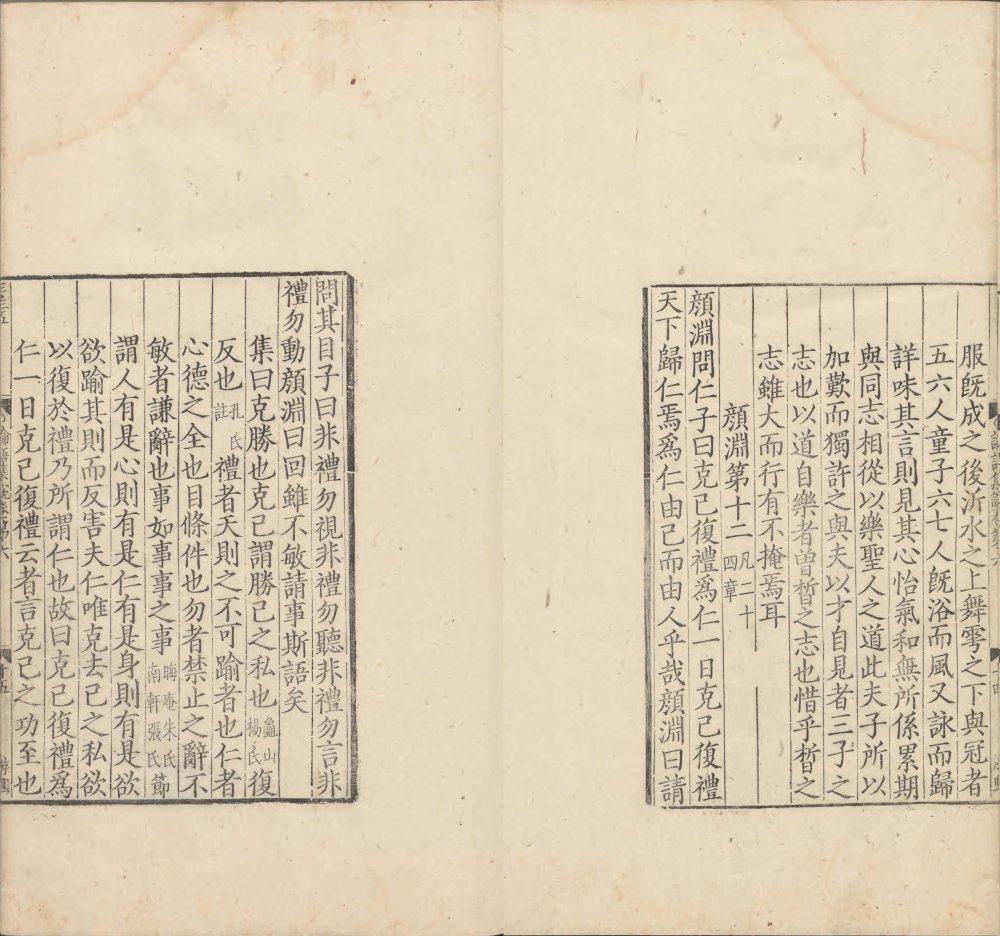 服旣成之後沂水之上舞雩之下與冠者
五六人童子六七人旣浴而風又詠而歸
詳味其言則見其心怡氣和無所係累期
與同志相從以樂聖人之道此夫子所以
加歎而獨許之與夫以才自見者三子之
志也以道自樂者曾晳之志也惜乎晳之
志雖大而行有不掩焉耳
顔淵第十二凡二十四章
顔淵問仁子曰克己復禮爲仁一日克己復禮
天下歸仁焉爲仁由己而由人乎哉顔淵曰請
問其目子曰非禮勿視非禮勿聽非禮勿言非
禮勿動顔淵曰回雖不敏請事斯語矣
集曰克勝也克己謂勝己之私也龜山楊氏復
反也孔氏註禮者天則之不可踰者也仁者
心德之全也目條件也勿者禁止之辭不
敏者謙辭也事如事事之事晦庵朱氏南軒張氏節
謂人有是心則有是仁有是身則有是欲
欲踰其則而反害夫仁唯克去己之私欲
以復於禮乃所謂仁也故曰克己復禮爲
仁一日克己復禮云者言克己之功至也
論語集說卷第六
十五